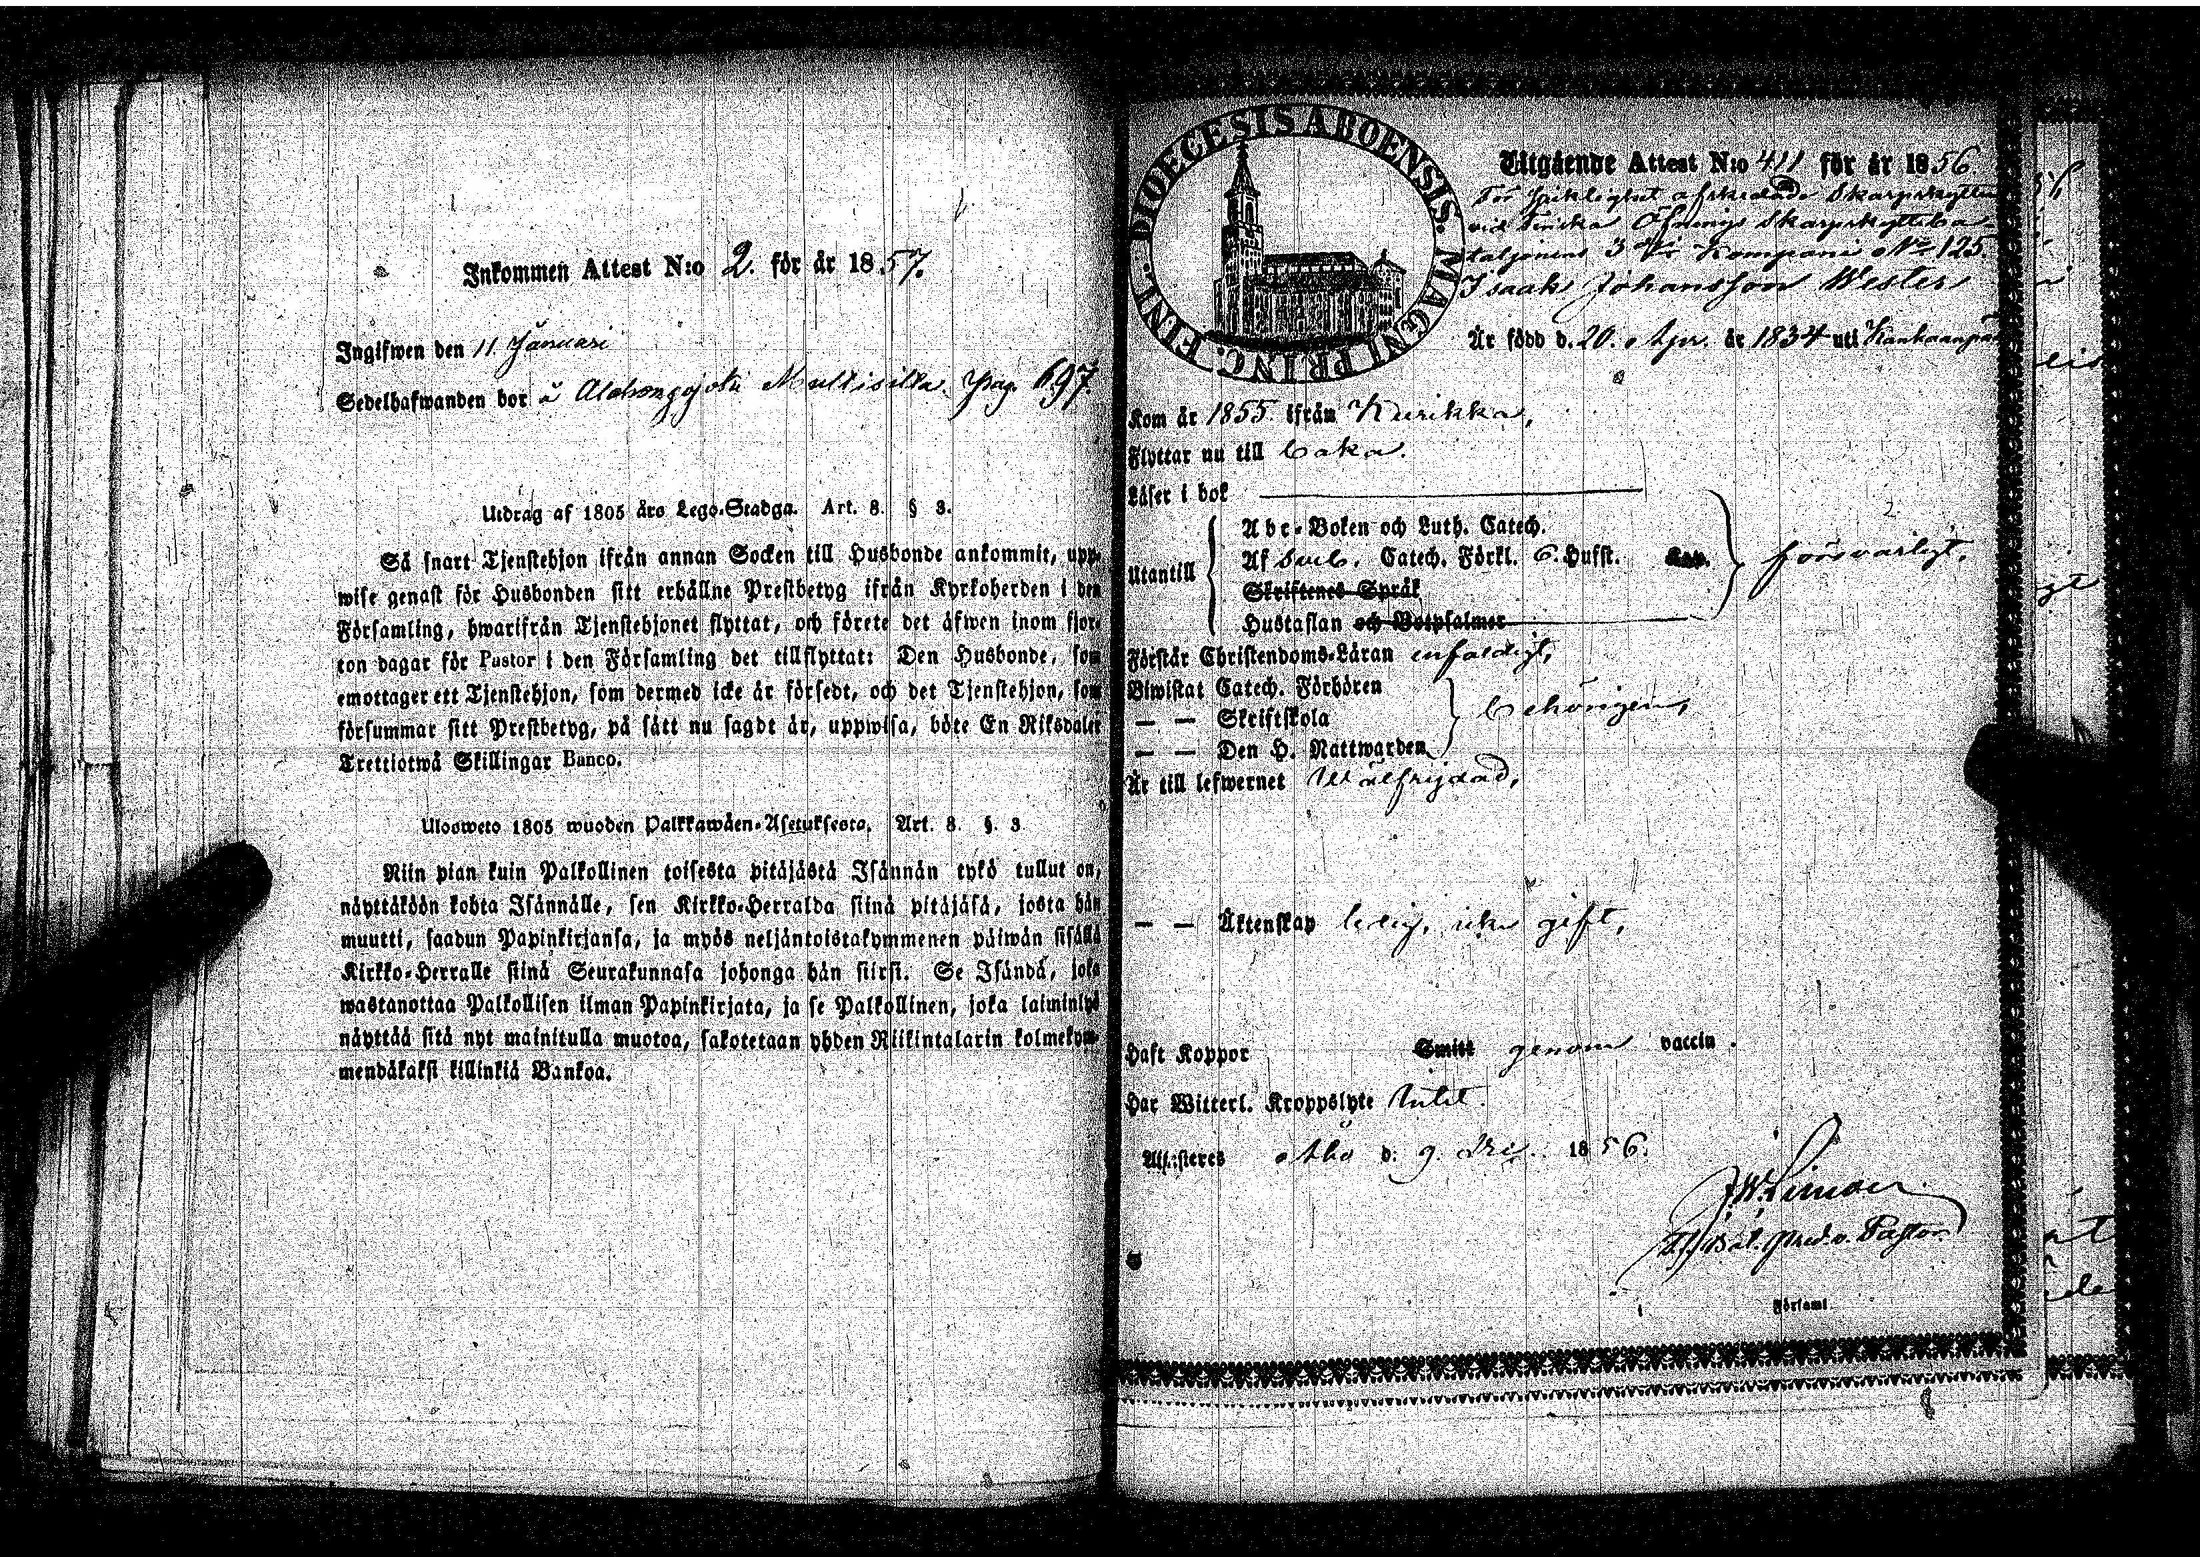 Inkommen Attest N:o 2. för år 1857.
Ingifwen den 11 Januari
Sedelhafwanden bor å Multisilta. pag. 697.
Utdrag af 1805 års Lego-Stadga. Art. 8. § 3.
Så snart Tjenstehjon ifrån annan Socken till Husbonde ankommit, upp-
wise genast för Husbonden sitt erhållne Prestbetyg ifrån Kyrkoherden i den
Församling, hwarifrån Tjenstehjonet flyttat, och förete det äfwen inom fjor-
ton dagar för Pastor i den Församling det tillflyttat: Den Husbonde, som
emottager ett Tjenstehjon, som dermed icke är försedt, och det Tjenstehjon, som
försummar sitt Prestbetyg, på sätt nu sagdt är, uppwisa, böte En Riksdaler
Trettiotwå Skillingar Banco.
Ulosweto 1805 wuoden Palkkawäen-Asetuksesta. Art. 8. §. 3
Niin pian kuin Palkollinen toisesta pitäjästä Isännän tykö tullut on,
näyttäköön kohta Isännälle, sen Kirkko-Herralda siinä pitäjäsä, josta hän
muutti, saadun Papinkirjansa, ja myös neljäntoistakymmenen päiwän sisällä
Kirkko-Herralle siinä Seurakunnasa johonga hän siirsi. Se Isändä, joka
wastanottaa Palkollisen ilman Papinkirjata, ja se Palkollinen, joka laiminlyö
näyttää sitä nyt mainitulla muotoa, sakotetaan yhden Riikintalarin kolmekym-
mendäkaksi killinkiä Bankoa.
DIOECESIS ABOENSIS. MAGNI PRINC. FINL.
Utgående Attest N:o 411 för år 1856.
För sjuklighet afskedade Skarpskytten
vid Finska Öfnings Skarpskytteba-
taljonens 3 Kompani No 125.
Isaak Johansson Wester
Är född d. 20. Apr. år 1834 uti Kankaanpää
Kom år 1855 ifrån Kurikka,
Flyttar nu till
Läser i bok
Utantill
Abc-Boken och Luth. Catech.
Af Sveb. Catech. Förkl. 6. Husst. Kap.
Skriftenes Språk
Hustaflan och Botpsalmer
försvarligt,
Förstår Christendoms-Läran enfaldigt,
Biwistat Catech. Förhören
— — Skriftskola
— — Den H. Nattwarden
behörigen,
Är till lefwernet Wälfrejdad,
— — Äktenskap ledig, icke gift,
Haft Koppor Smitt genom vaccin.
Har Witterl. Kroppslyte Intet.
Attesteres Åbo d. 9. 1856.
Pred. o. Pastor
i Församl.